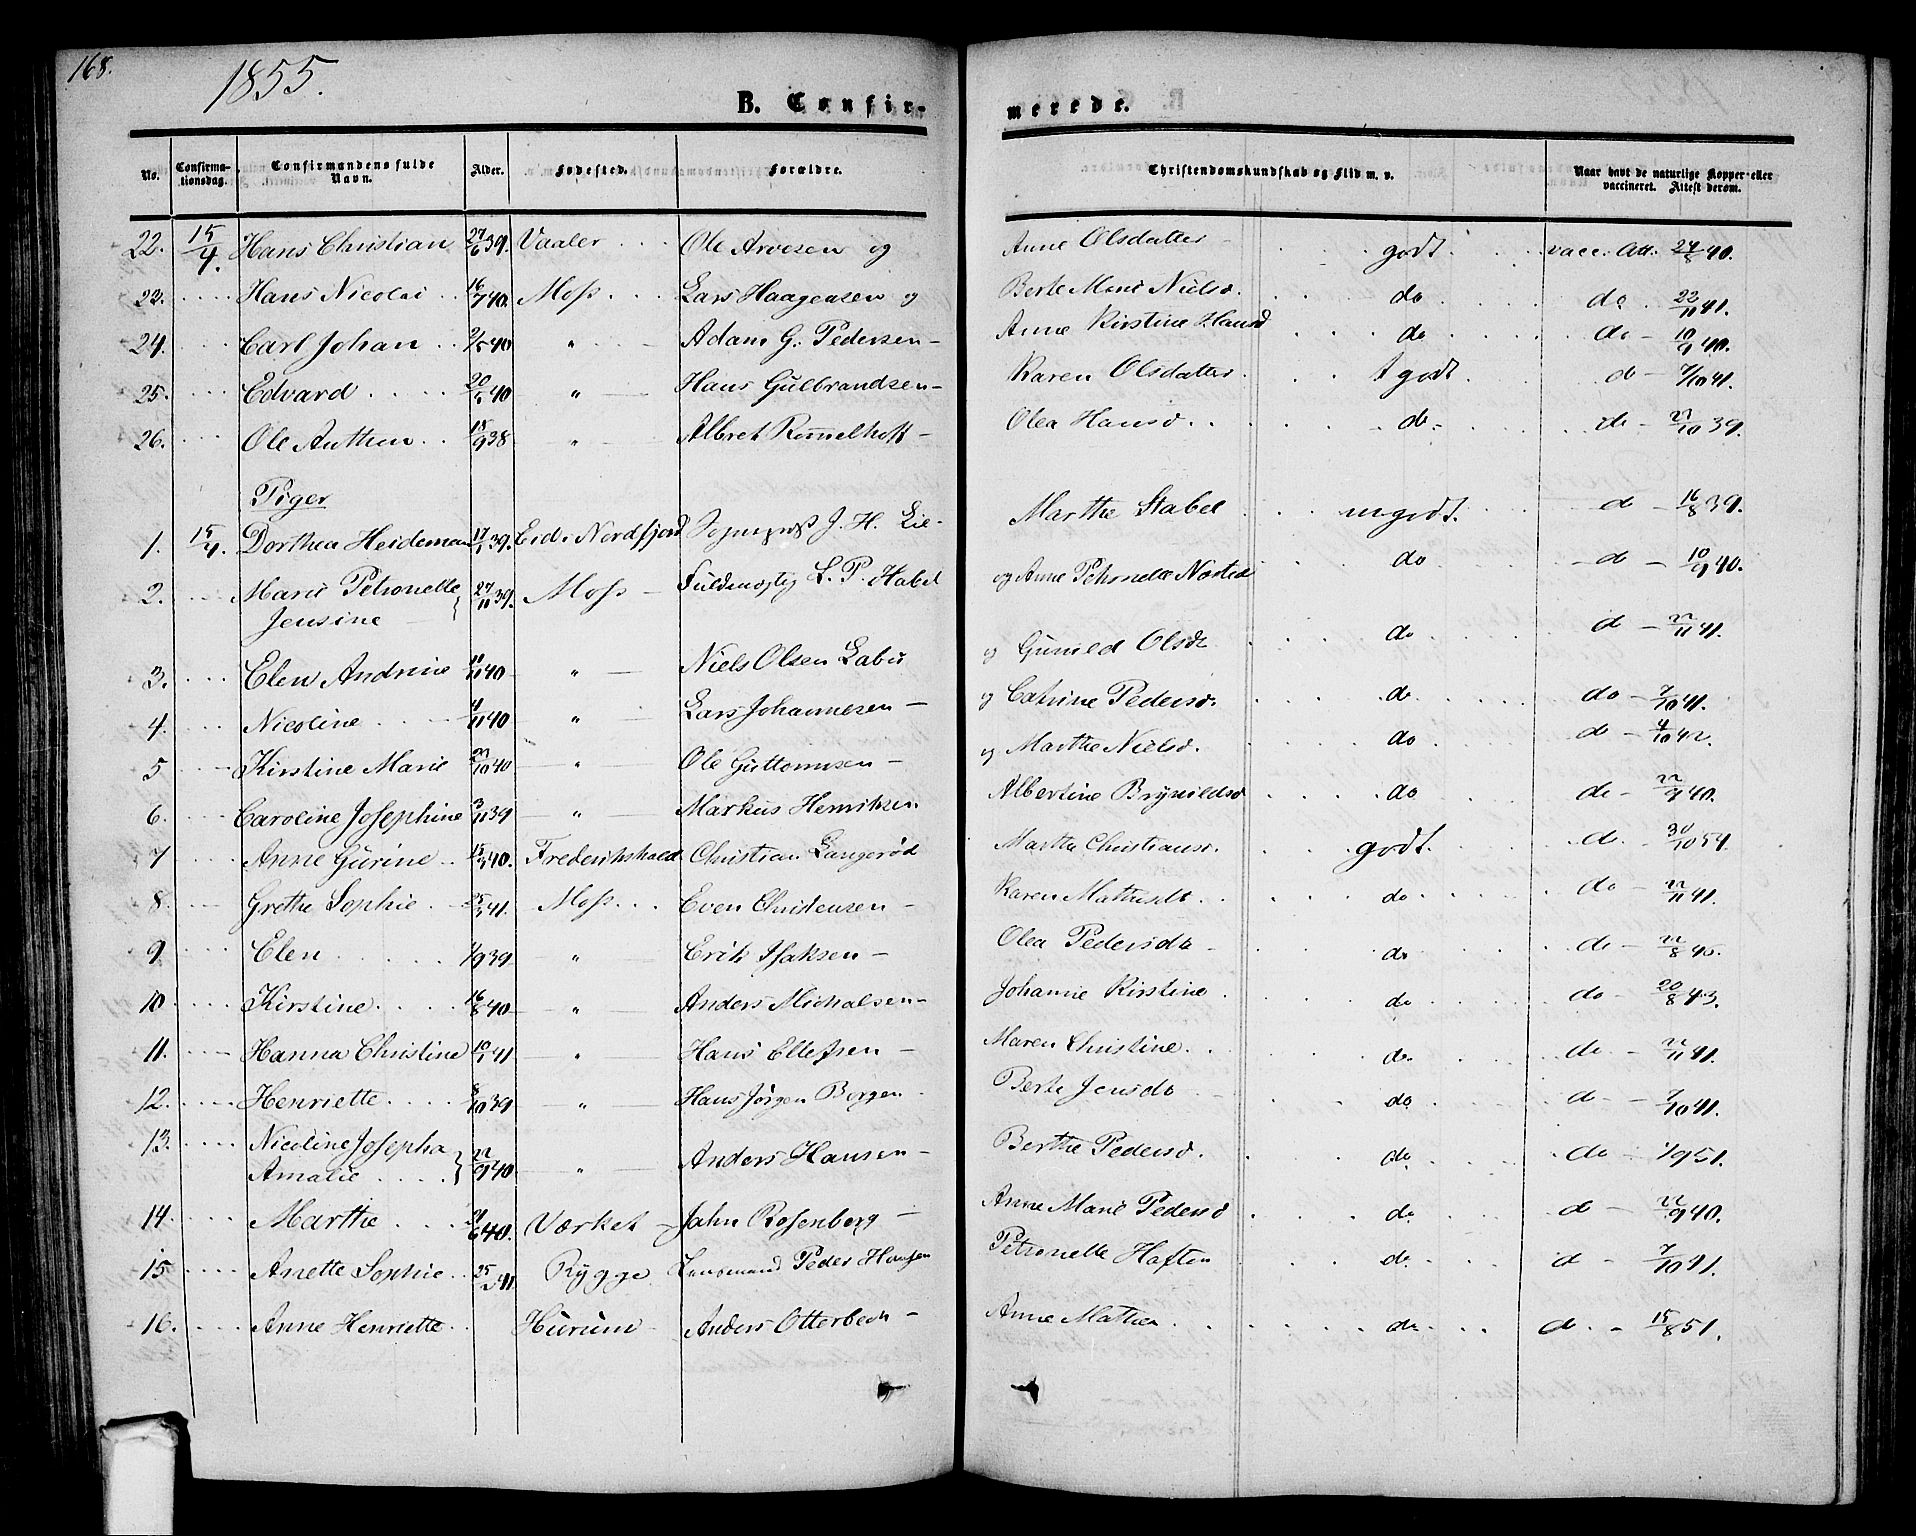 168.
1855.
B. Confirmerede.
No. Confirmationsdag. Confirmandens fulde Navn. Alder. Fødested. Forældre. Christendomskundskab og Flid m. v. Naar havt de naturlige Kopper eller vaccineret. Attest derom.
22. 15/4. Hans Christian 27/6 39. Vaaler Ole Arvesen og Anne Olsdatter godt vacc. Att. 24/8 40.
23. Hans Nicolai 16/7 40. Moss Lars Haagensen og Berte Marie Nielsd. do do. 22/11 41.
24. Carl Johan 2/5 40 " Adam G. Pedersen Anne Kirstine Hansd do do 10/9 40.
25. Edvard 40 " Hans Gulbrandsen Karen Olsdatter tgodt d 7/10 41.
26. Ole Anthon 15/9 38 " Albret Rømelhoff Olea Hansd do d 39.
Piger
1. 15/4. Dorthea Heideman 39. Eid i Nordfjord Sogneprst J. H. Lie Marthe Stabel mgodt. d 16/8 39.
2. Marie Petronelle Jensine 27/11 39. Moss Fuldmegtig L. P. Habel og Anne Petronelle do d 10/9 40.
3. Elen Andrine 40 " Niels Olsen Labu og Gunild Olsdt do d 22/11 41.
4. Nicoline 4/11 40 " Lars Johannesen og Catrine Pedersd. do do 7/10 41.
5 Kirstine Marie 40 " Ole Guttormsen og Marthe Nielsd. do d 4/10 42.
6. Caroline Josephine 3/11 39 " Markus Henriksen Albertine Brynildsd do do 22/9 40.
7 Anne Gurine 40. Frederikshald Christian Langerød Marthe Christiansd. godt. do 30/10 54.
8. Grethe Sophie 41. Moss Even Christensen Karen Mathisdt. do do 22/11 41.
9 Elen 39 " Erik Isaksen Olea Pedersda do do 22/8
10 Kirstine 16/8 40 " Anders Michalsen Johanne Kirstine do do 20/8 43.
11. Hanna Christine 41 " Hans Ellefsen Maren Christine do. do 22/11 41.
12. Henriette 8/10 39 " Hans Jørgen Borgen Berte Jensda do d 7/10 41.
13. Nicoline Josepha Amalie 22/9 40 " Anders Hansen Berthe Pedersd. do do 51.
14. Marthe 40. Værket John Rosenberg Anne Marie Pedersd do d 22/9 40.
15 Anette Sophie 41 Rygge Lensmand Peder Hansen Petronelle Haften do. d 7/10 41.
16. Anne Henriette Hurum Anders Otterbech Anne Mathea do d. 15/8 51.